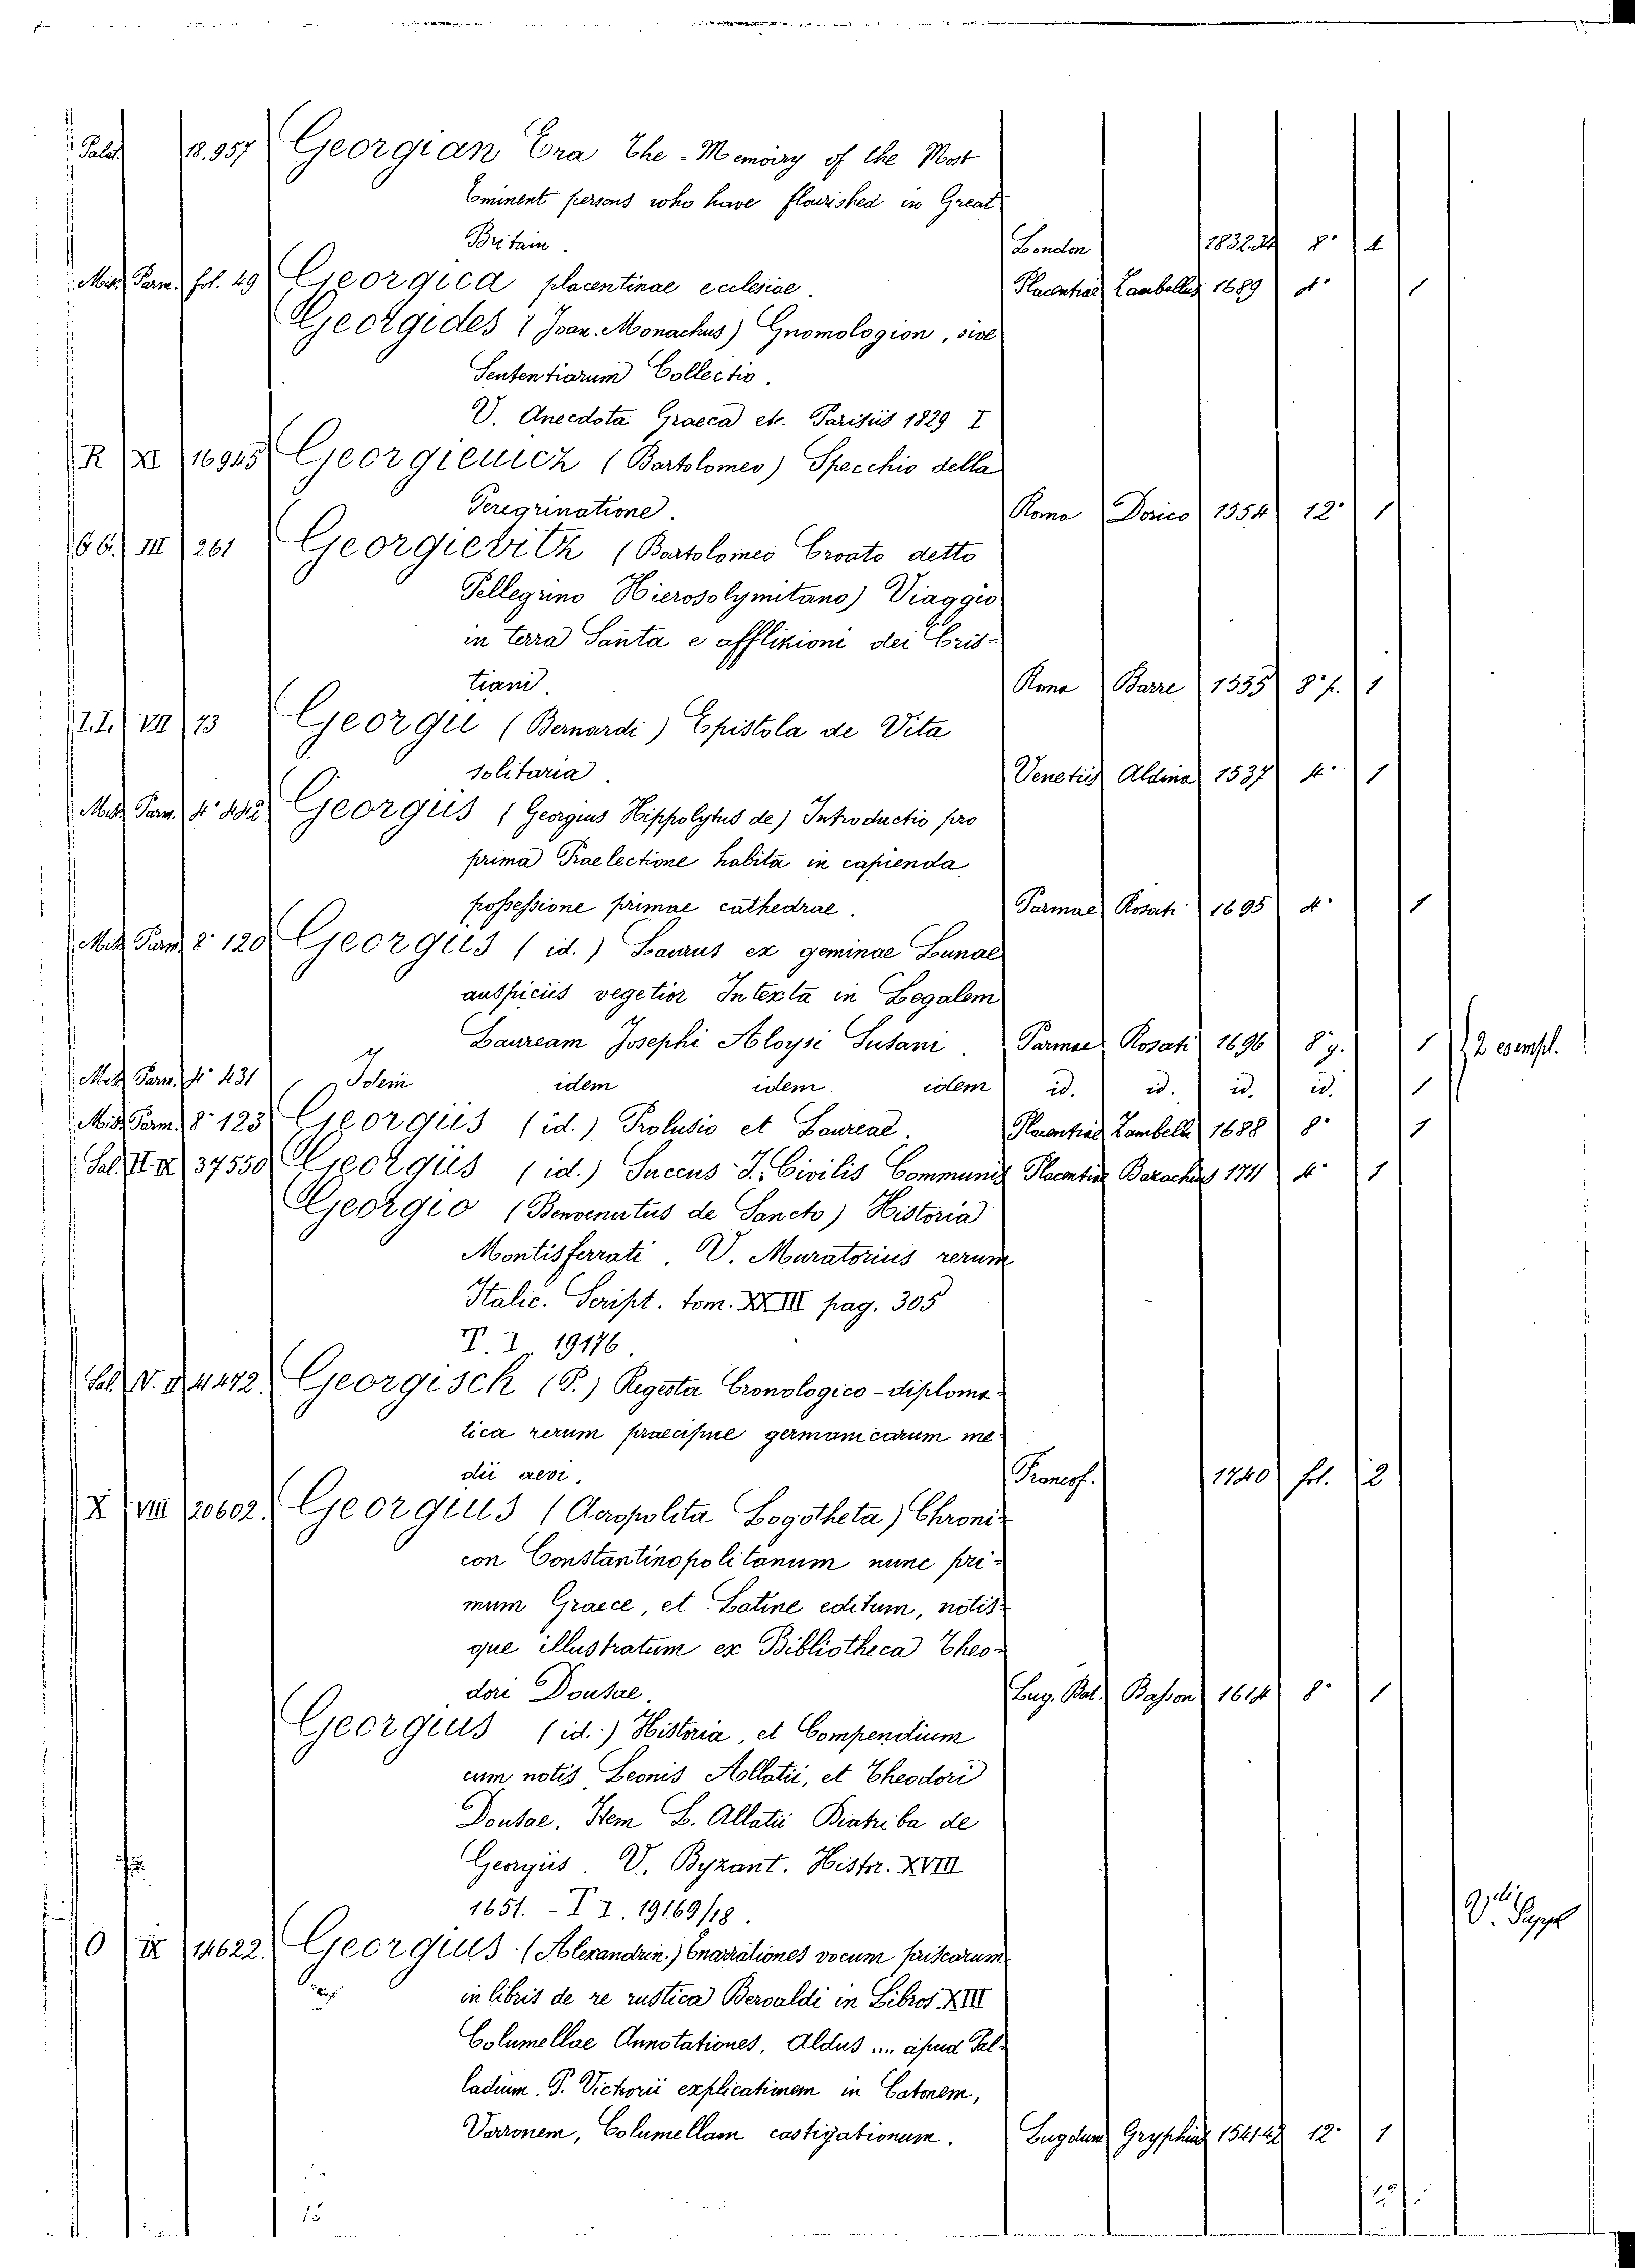 Palat. 18.957 Georgian Era The - Memoiry of the Most
Eminent persons who have flourished in Great
Britain. London 1832.34 8° 4
Misc. Parm. fol. 49 Georgica placentinae ecclesiae. Placentiae Zambelleg 1689 4° 1
Georgides (Joan. Monachus) Gnomologion, sive
Sententiarum Collectio.
V. Anecdota Graeca etc. Parisiis 1829 I
R XI 16945 Georgieuich (Bartolomeo) Specchio della
Peregrinatione. Roma Dorico 1554 12° 1
GG. III 261 Georgievith (Bartolomeo Croato detto
Pellegrino Hierosolymitano) Viaggio
in terra Santa e afflizioni dei Cris-
tiani. Roma Barre 1555 8° p. 1
VII 73 Georgii (Bernardi) Epistola de Vita
solitaria. Venetiis Aldina 1537 4° 1
Misc. Parm. 4° 442 Georgiis (Georgius Hippolytus de) Introductio pro
prima Praelectione habita in capienda
possessione primae cathedrae. Parmae Rosati 1695 4° 1
Misc. Parm. 8° 120 Georgiis (id.) Laurus ex geminae Lunae
auspiciis vegetior Intexta in Legalem
Lauream Josephi Aloysi Susani. Parmae Rosati 1696 8° g. 1 2 esempl.
Misc. Parm. 4° 431 Idem idem idem idem id. id. id. id. 1
Misc. Parm. 8° 123 Georgiis (id.) Prolusio et Laureae. Placentiae Zambelli 1688 8° 1
Sal. II. 37550 Georgiis (id.) Succus J. Civilis Communis Placentiae Barachus 1711 4° 1
Georgio (Benvenutus de Sancto) Historia
Montisferrati. V. Muratorius rerum
Italic. Script. tom. XXIII pag. 305
T. I. 19176.
Sal. V. 4472. Georgisch (P.) Regesta Cronologico-diploma
tica rerum praecipue germanicarum me
dii aevi. Francof. 1740 fol. 2
X VIII 20602. Georgius (Acropolita Logotheta) Chroni-
con Constantinopolitanum nunc pri-
mum Graece, et Latine editum, notis-
que illustratum ex Bibliotheca Theo-
dori Dousae. Lug. Bat. Basson 1614 8° 1
Georgius (id.) Historia, et Compendium
cum notis Leonis Allatii, et Theodori
Dousae. Item L. Allatii Diatriba de
Georgiis. V. Byzant. Histor. XVIII
1651. - T I. 19169/18.
V. Suppl
O IX 14622. Georgius (Alexandrin.) Enarrationes vocum priscarum
in libris de re rustica Beroaldi in Libros XIII
Columellae Annotationes, Aldus ... apud Pal-
ladium. P. Victorii explicationem in Catonem,
Varronem, Columellam castigationum. Lugduni Gryphius 1541.42 12° 1
15